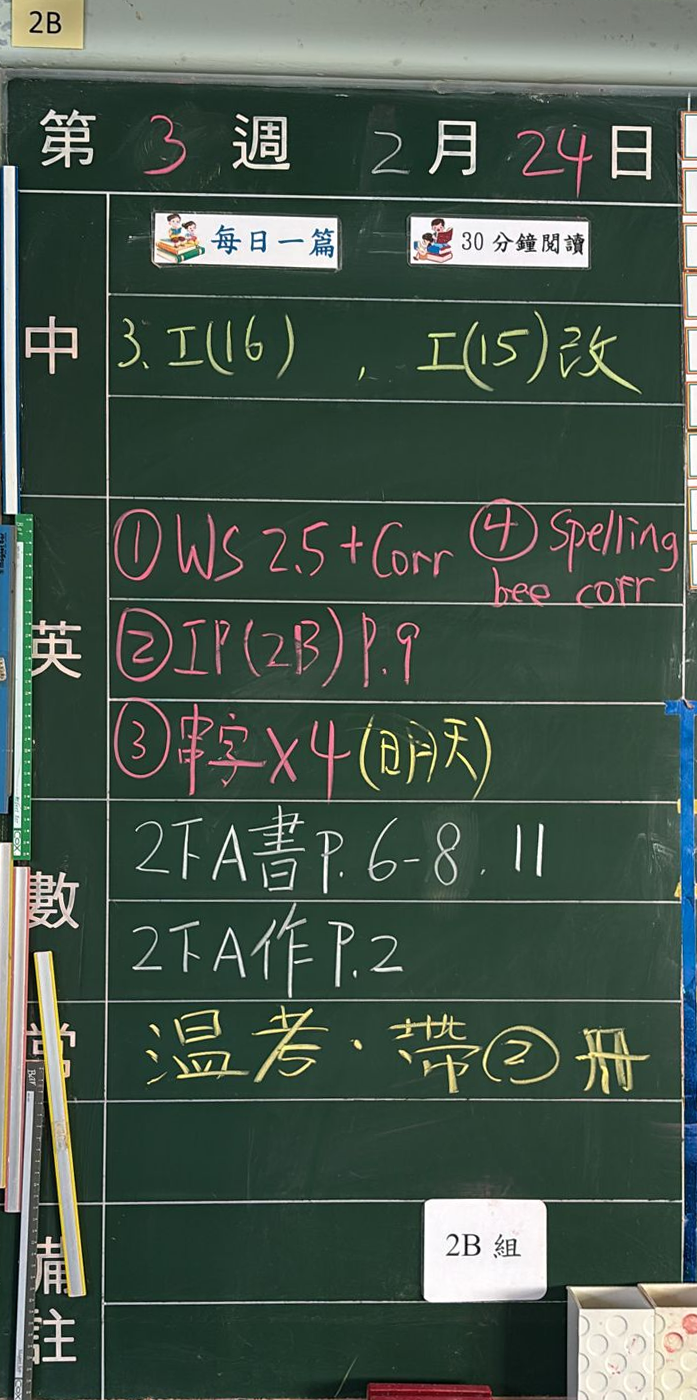 2B
第 3 週 2月 24日
每日一篇 30分鐘閱讀
中
3. 工(16) , 工(15)改
英
① WS 2.5 + Corr
④ Spelling bee corr
② IP (2B) P.9
③ 串字 x 4 (明天)
數
2下A書 P. 6-8, 11
2下A作 P.2
常
溫考．帶②冊
備註
2B 組